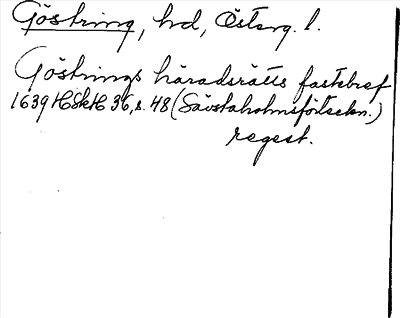 Göstring, hd, Österg. l.
Göstrings häradsrätts fastebref
1639 HSkH 36, s. 48 (Säfstaholmsförteckn.)
regest.